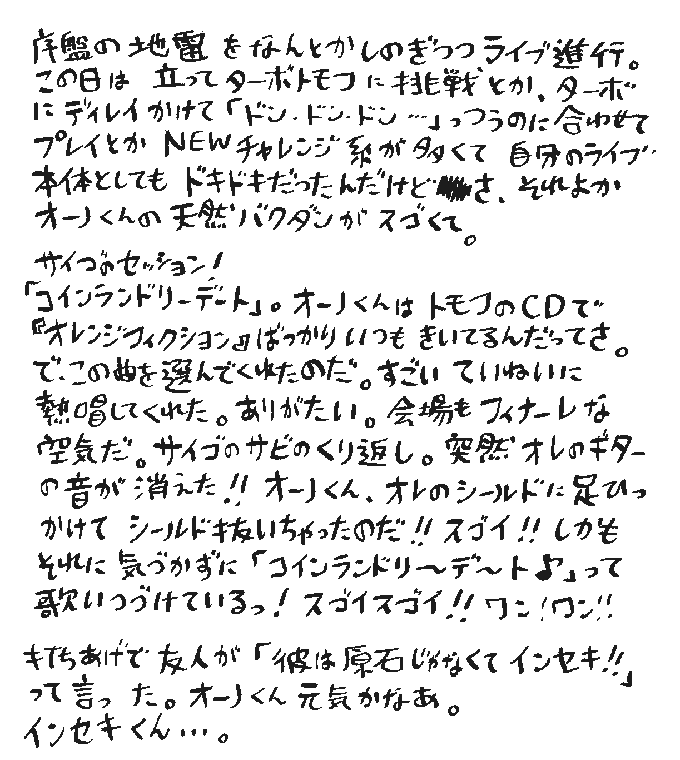 序盤の地雷をなんとかしのぎつつライブ進行。
この日は 立ってターボトモフに挑戦とか、ターボ
にディレイかけて「ドン・ドン・ドン…」っつうのに合わせて
プレイとか NEWチャレンジ系が多くて 自分のライブ
本体としても ドキドキだったんだけどさ、それよか
オーノくんの天然バクダンがスゴくて。
サイゴのセッション!
「コインランドリーデート」。オーノくんはトモフのCDで
『オレンジフィクション』ばっかりいつもきいてるんだってさ。
で、この曲を選んでくれたのだ。すごいていねいに
熱唱してくれた。ありがたい。会場もフィナーレな
空気だ。サイゴのサビのくり返し。突然オレのギター
の音が消えた!! オーノくん、オレのシールドに足ひっ
かけて シールド抜いちゃったのだ!! スゴイ!! しかも
それに気づかずに「コインランドリ〜デ〜ト♪」って
歌いつづけているっ! スゴイスゴイ!! ワン!ワン!!
打ちあげで友人が「彼は原石じゃなくてインセキ!!」
って言った。オーノくん元気かなあ。
インセキくん…。